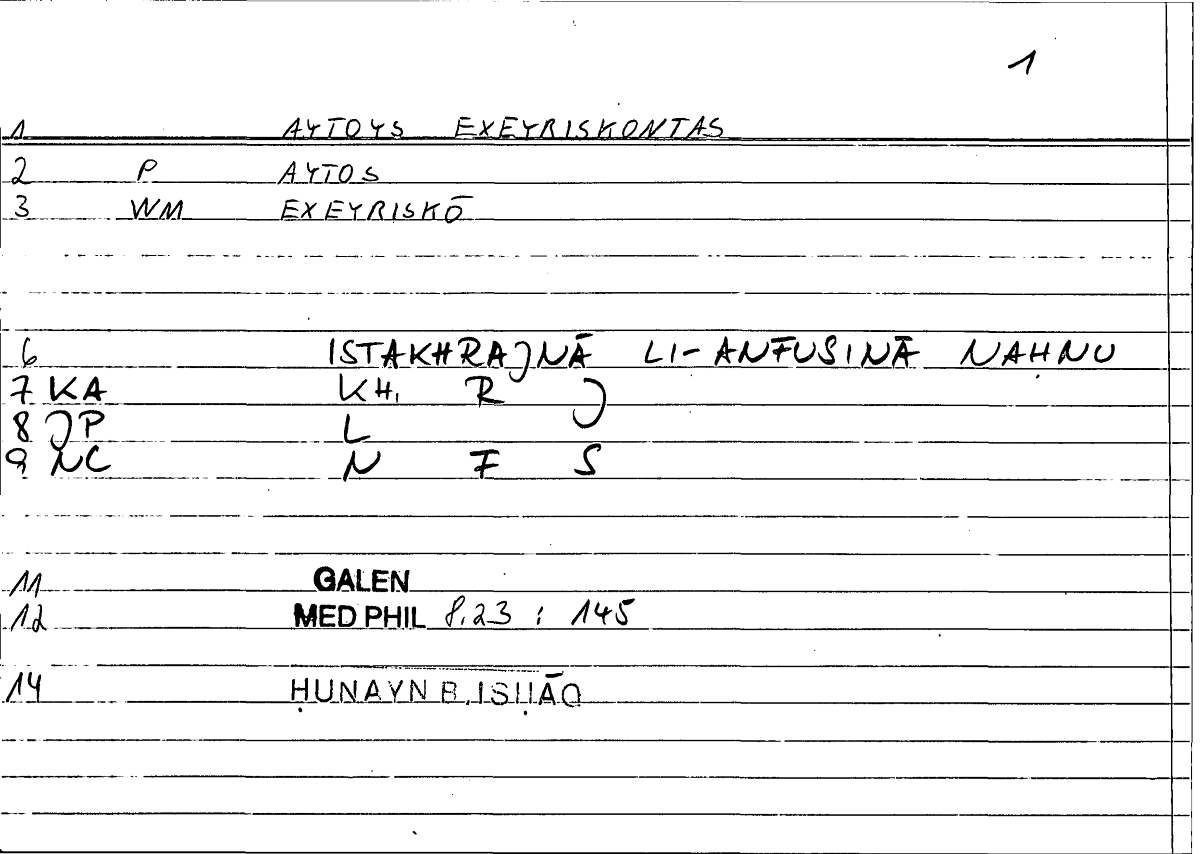 1
1 AYTOYS EXEYRISKONTAS
2 P AYTOS
3 WM EXEYRISKŌ
6 ISTAKHRAJNĀ LI-ANFUSINĀ NAḤNU
7 KA KH, R J
8 JP L
9 NC N F S
11 GALEN
12 MED PHIL 8.23 : 145
14 ḤUNAYN B. ISḤĀQ